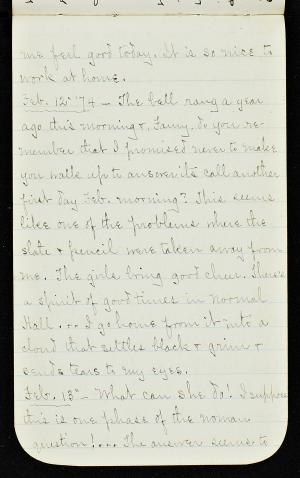 me feel good today. It is so nice to
work at home.
Feb. 12" '74 - The bell rang a year
ago this morning &, Fanny, do you re-
member that I promised never to make
you walk up to answer its call another
first day Feb. morning? This seems
like one of the problems where the
slate & pencil were taken away from
me. The girls bring good cheer. There's
a spirit of good times in Normal
Hall... I go home from it into a
cloud that settles black & grim &
sends tears to my eyes.
Feb. 13" - What can she do! I suppose
this is one phase of the woman
question!... The answer seems to